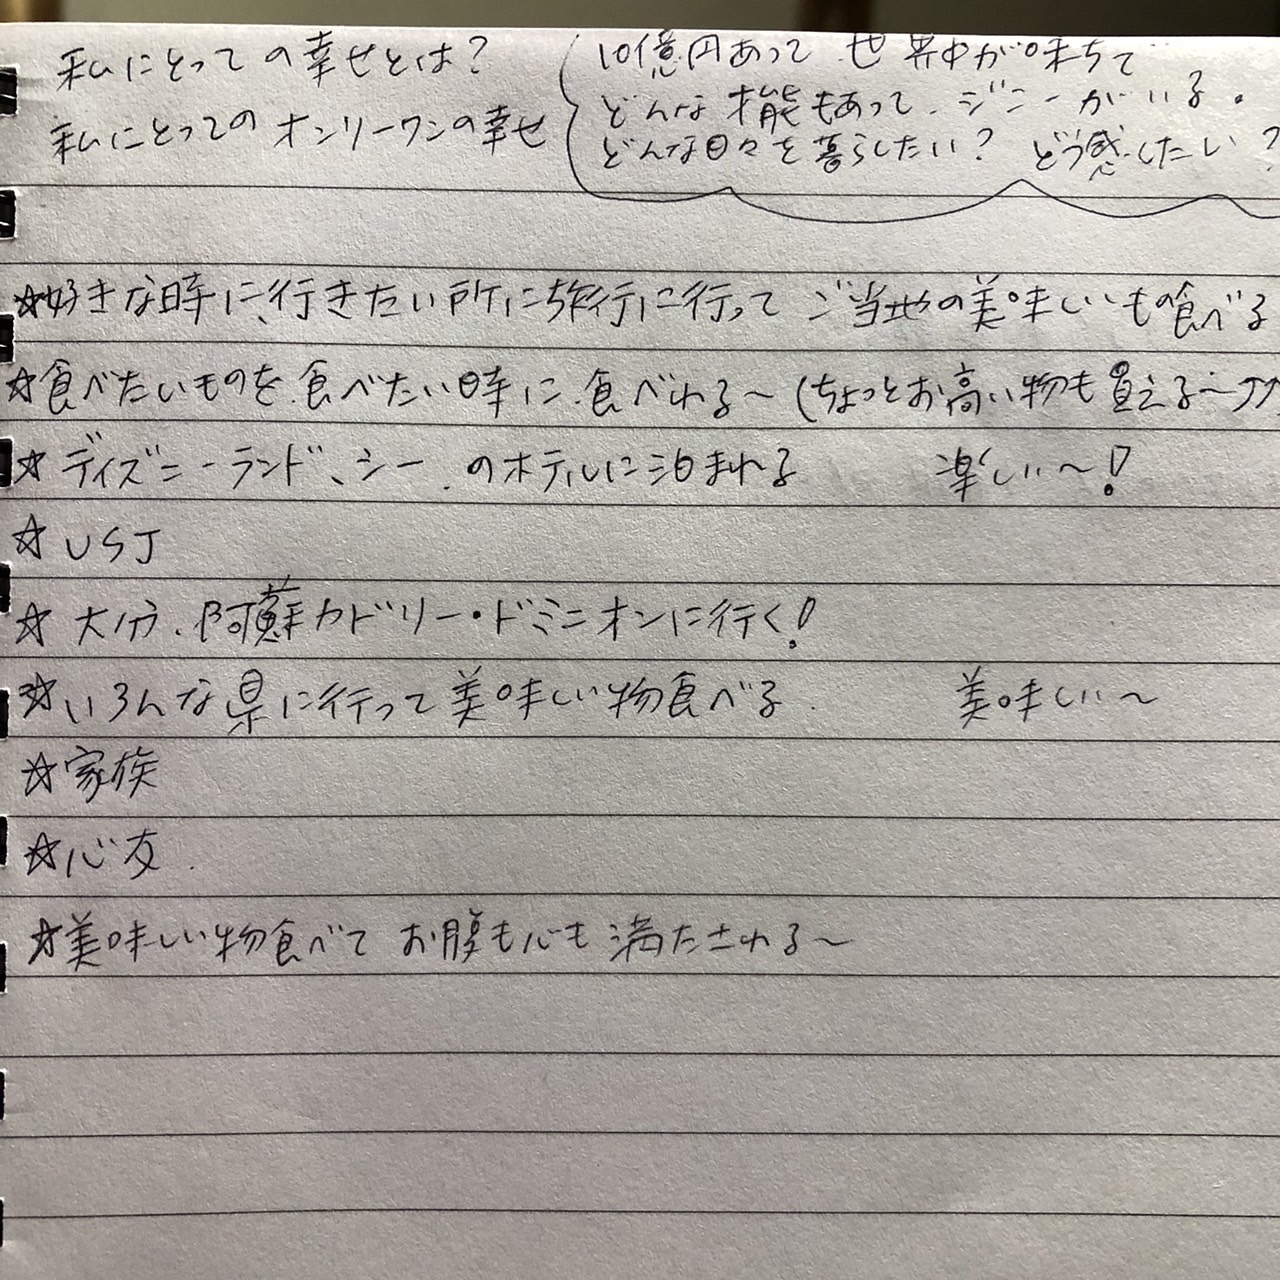 私にとっての幸せとは?
私にとってのオンリーワンの幸せ
10億円あって 世界中が味ちて
どんな才能もあって、ジニーがいる。
どんな日々を暮らしたい? どう感したい?
☆好きな時に、行きたい所に旅行に行って ご当地の美味しいもの食べる
☆食べたいものを、食べたい時に、食べれる〜(ちょっとお高い物も買える〜
☆ディズニーランド、シー、のホテルに泊まれる 楽しい〜!
☆USJ
☆大分、阿蘇カドリー・ドミニオンに行く!
☆いろんな県に行って美味しい物食べる 美味しい〜
☆家族
☆心友
☆美味しい物食べて お腹も心も満たされる〜